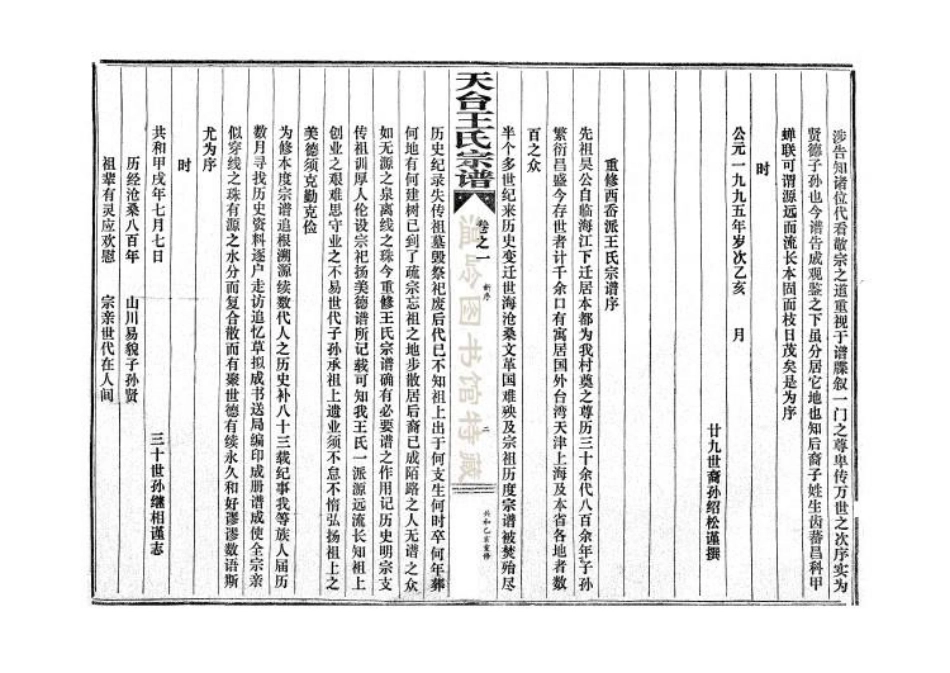 涉告知诸位代看敬宗之道重视于谱牒叙一门之尊卑传万世之次序实为
贤德子孙也今谱告成观鉴之下虽分居它地也知后裔子姓生齿蕃昌科甲
蝉联可谓源远而流长本固而枝日茂矣是为序
时
公元一九九五年岁次乙亥 月
廿九世裔孙绍松谨撰
重修西岙派王氏宗谱序
先祖昊公自临海江下迁居本都为我村奠之尊历三十余代八百余年子孙
繁衍昌盛今存世者计千余口有寓居国外台湾天津上海及本省各地者数
百之众
半个多世纪来历史变迁世海沧桑文革国难殃及宗祖历度宗谱被焚殆尽
天台王氏宗谱
卷之一
新序
二
共和乙亥重修
温岭图书馆特藏
历史纪录失传祖墓毁祭祀废后代已不知祖上出于何支生何时卒何年葬
何地有何建树已到了疏宗忘祖之地步散居后裔已成陌路之人无谱之众
如无源之泉离线之珠今重修王氏宗谱确有必要谱之作用记历史明宗支
传祖训厚人伦设宗祀扬美德谱所记载可知我王氏一派源远流长知祖上
创业之艰难思守业之不易世代子孙承祖上遗业须不怠不惰弘扬祖上之
美德须克勤克俭
为修本度宗谱追根溯源续数代人之历史补八十三载纪事我等族人届历
数月寻找历史资料逐户走访追忆草拟成书送局编印成册谱成使全宗亲
似穿线之珠有源之水分而复合散而有聚世德有续永久和好谬谬数语斯
尤为序
时
共和甲戌年七月七日
三十世孙继相谨志
历经沧桑八百年 山川易貌子孙贤
祖辈有灵应欢慰 宗亲世代在人间